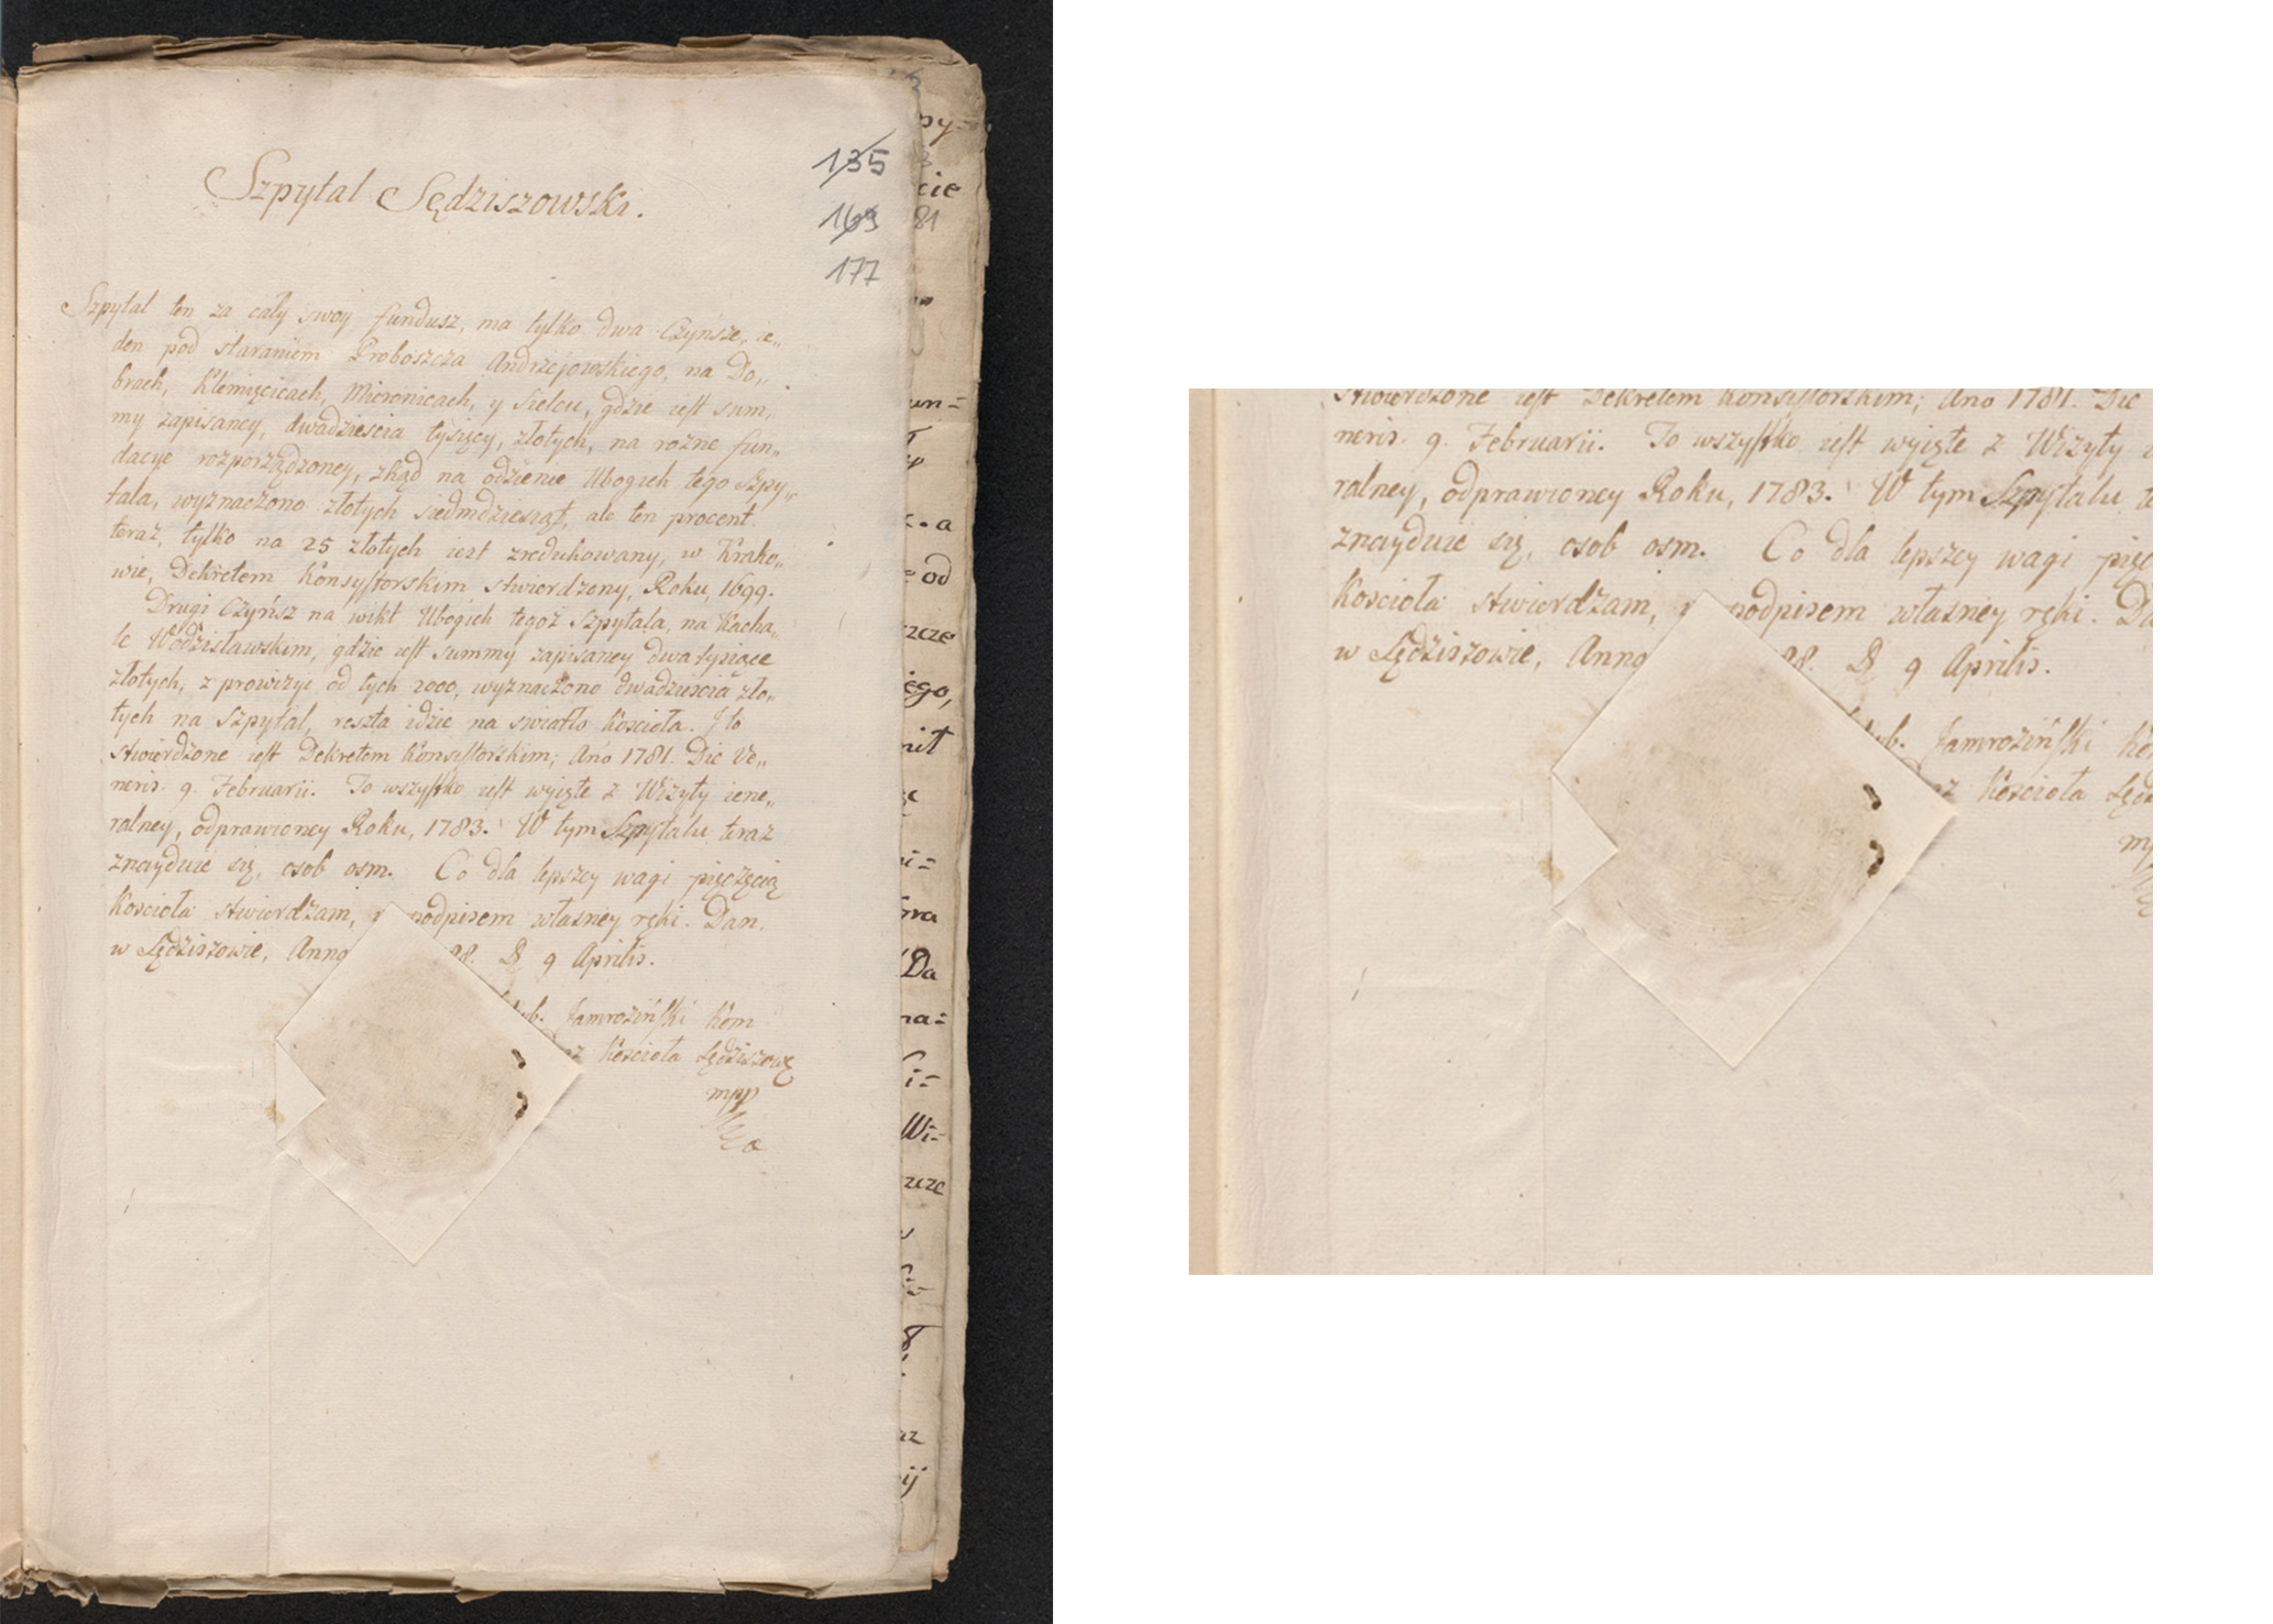 135
169
177
Szpytal Sędziszowski.
Szpytal ten za cały swoy fundusz, ma tylko dwa Czynsze, ie„
den pod staraniem Proboszcza Andrzejowskiego, na Do„
brach, Klemięcicach, Mieronicach, y Sielcu, gdzie iest sum„
my zapisaney, dwadziescia tysięcy, złotych, na rozne fun„
dacye rozporządzoney, zkąd na odzienie Ubogich tego Szpy„
tala, wyznaczono złotych siedmdziesiąt, ale ten procent
teraz, tylko na 25 złotych iest zredukowany, w Krako„
wie, Dekretem Konsystorskim stwierdzony, Roku, 1699.
Drugi Czyńsz na wikt Ubogich tegoż Szpytala, na Kacha„
le Wodzisławskim, gdzie iest summy zapisaney dwa tysiące
złotych, z prowizyi od tych 2000, wyznaczono dwadziescia zło„
tych na Szpytal, reszta idzie na swiatło Koscioła. J to
stwierdzone iest Dekretem Konsystorskim; Ano 1781. Die Ve„
neris. 9. Februarii. To wszystko iest wyięte z Wizyty iene„
ralney, odprawioney Roku, 1783. W tym Szpytalu teraz
znayduie się, osob osm. Co dla lepszey wagi pięczęcią
Koscioła stwierdzam, podpisem własney ręki. Dan.
w Sędziszowie, Anno 88. D 9 Aprilis.
Jamroziński Kom
Koscioła Sędziszowę
mpp
stwierdzone iest Dekretem Konsystorskim; Ano 1781. Die
neris. 9. Februarii. To wszystko iest wyięte z Wizyty
ralney, odprawioney Roku, 1783. W tym Szpytalu
znayduie się, osob osm. Co dla lepszey wagi
Koscioła stwierdzam, podpisem własney ręki.
w Sędziszowie, Anno 88. D 9 Aprilis.
Jamroziński
Koscioła